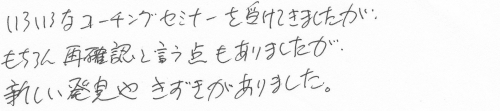 いろいろなコーチングセミナーを受けてきましたが、
もちろん再確認と言う点もありましたが、
新しい発見やきずきがありました。